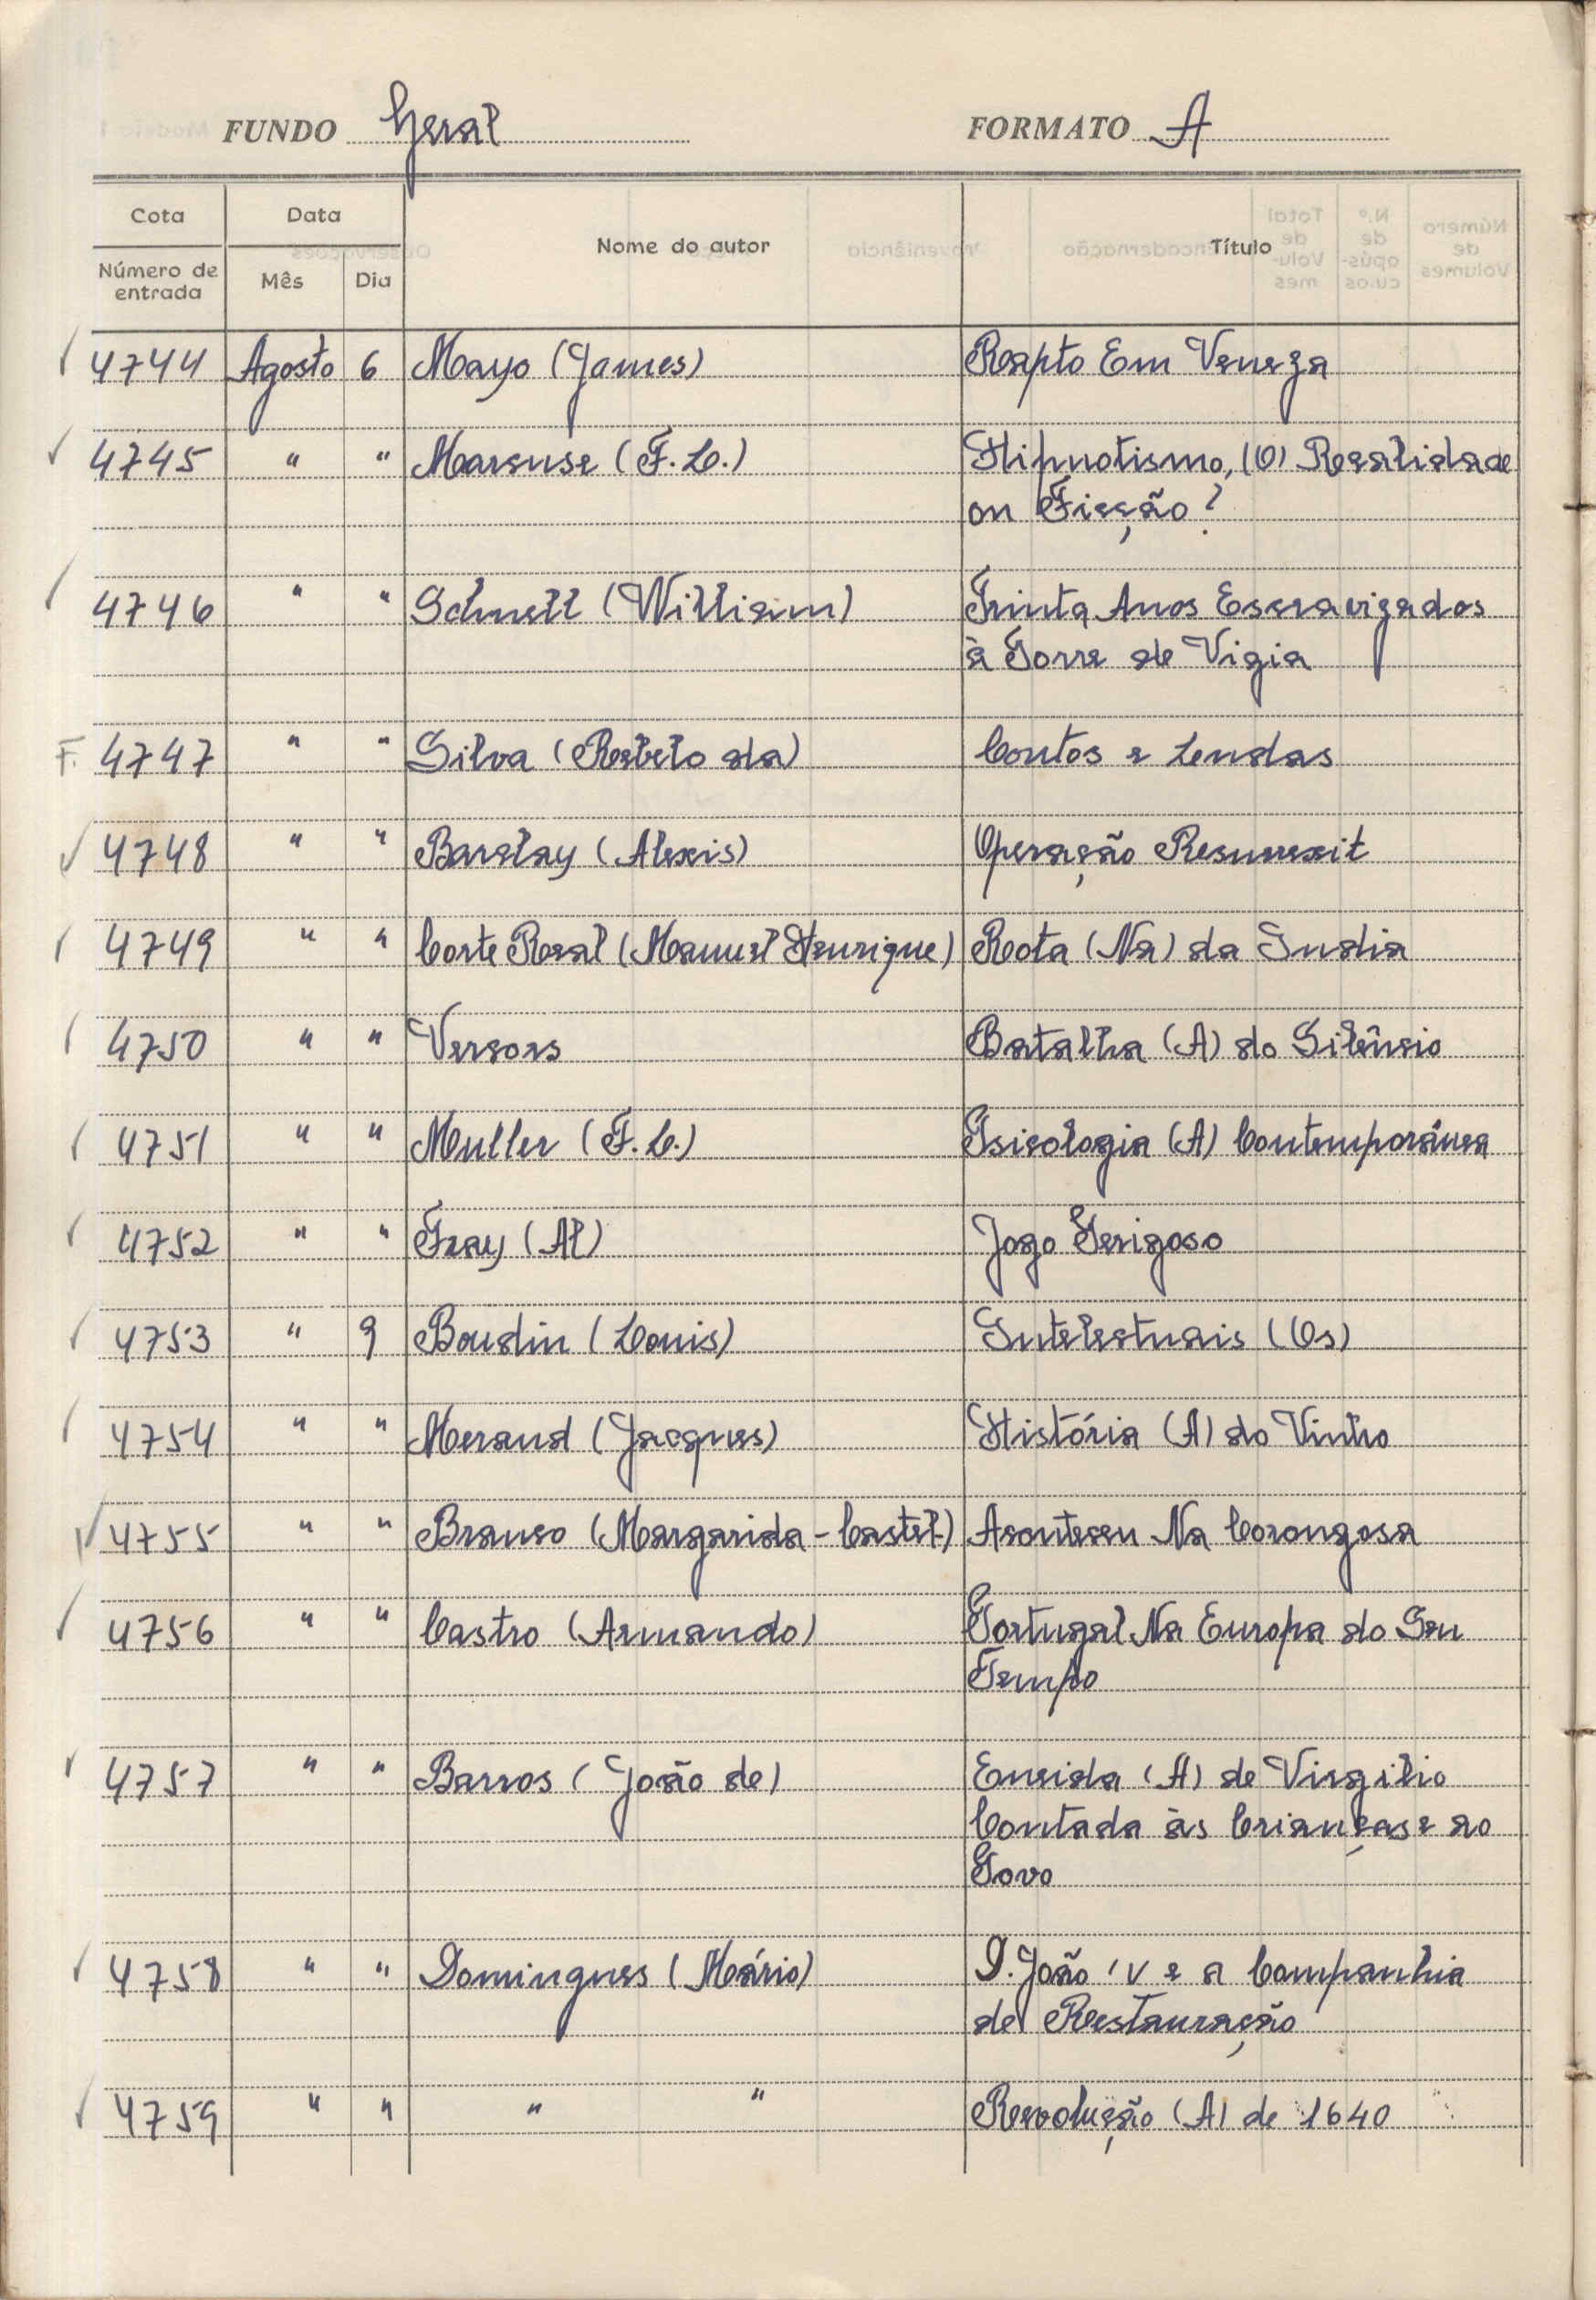 FUNDO Geral FORMATO A
Cota Data Nome do autor Título
Número de entrada Mês Dia
✓ 4744 Agosto 6 Mayo (James) Rapto Em Veneza
✓ 4745 " " Marcuse (F. C.) Hipnotismo, (O) Realidade
ou Ficção?
✓ 4746 " " Schnell (William) Trinta Anos Escravizados
à Torre de Vigia
F. 4747 " " Silva (Rebelo da) Contos e Lendas
✓ 4748 " " Barclay (Alexis) Operação Resurrexit
✓ 4749 " " Corte Real (Manuel Henrique) Rota (Na) da India
✓ 4750 " " Vercors Batalha (A) do Silêncio
✓ 4751 " " Muller (F. C.) Psicologia (A) Contemporânea
✓ 4752 " " Fray (Al) Jogo Perigoso
✓ 4753 " 9 Boudin (Louis) Intelectuais (Os)
✓ 4754 " " Meraud (Jacques) História (A) do Vinho
✓ 4755 " " Branco (Margarida - Castel.) Aconteceu Na Corongosa
✓ 4756 " " Castro (Armando) Portugal Na Europa do Seu
Tempo
✓ 4757 " " Barros (João de) Eneida (A) de Virgilio
Contada às Crianças e ao
Povo
✓ 4758 " " Domingues (Mário) D. João IV e a Companhia
de Restauração
✓ 4759 " " " " Revolução (A) de 1640